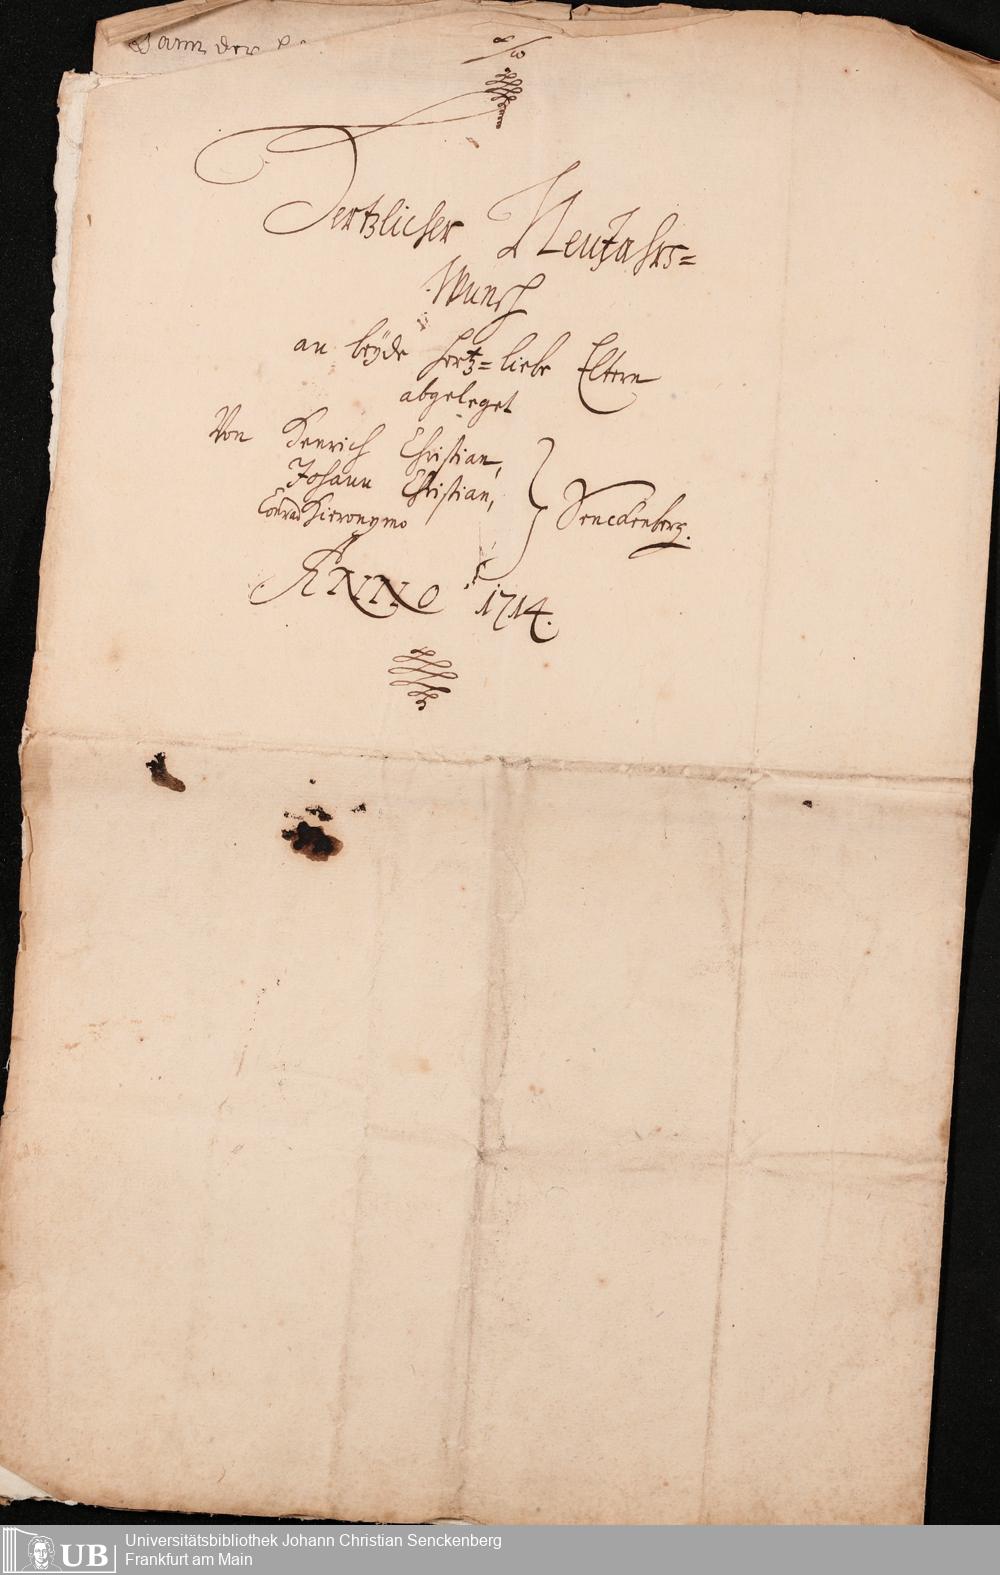 Hertzlicher NeuJahrs=
Wunsch
an beÿde hertz=liebe Eltern
abgeleget
Von Henrich Christian,
Johann Christian,
Conrad Hieronymo
Senckenberg.
ANNO 1714.
UB
Universitätsbibliothek Johann Christian Senckenberg
Frankfurt am Main